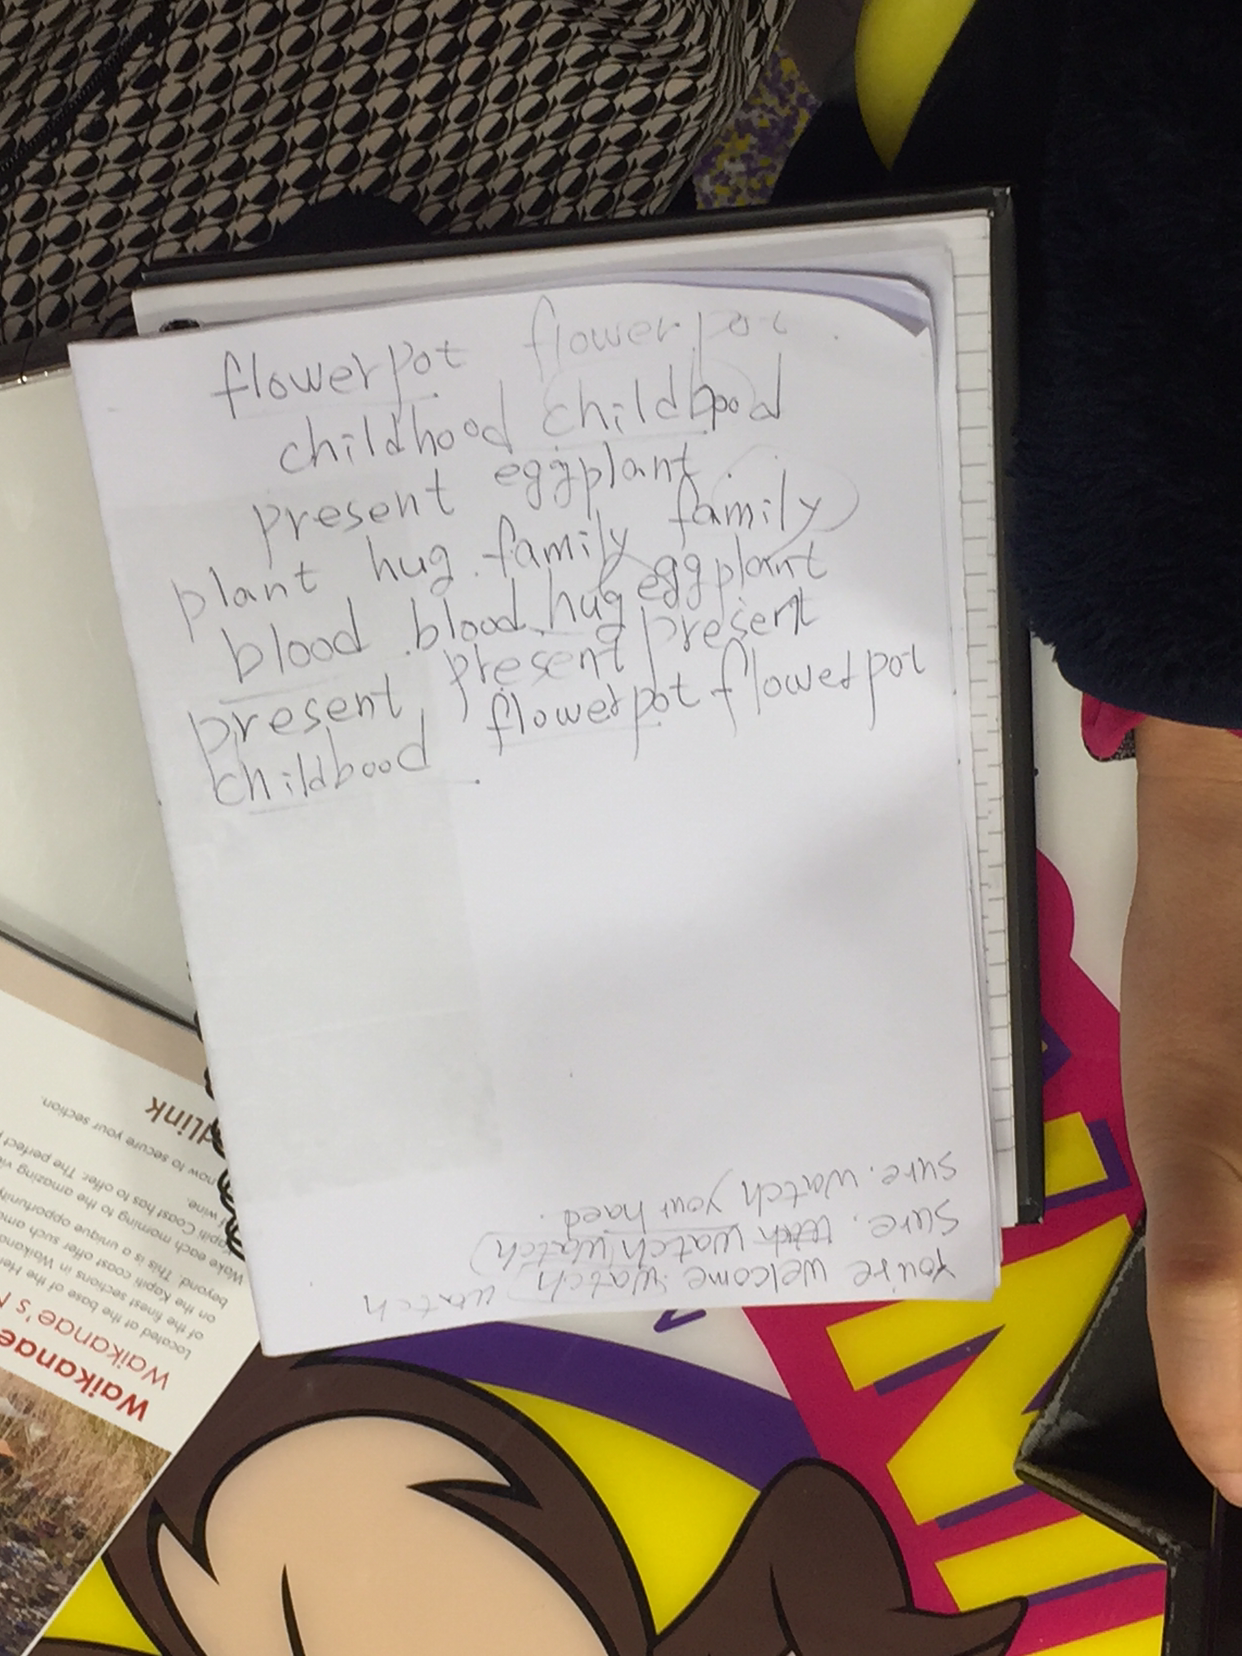 flowerpot flowerpot
childhood childbood
present eggplant
plant hug family family
blood blood hug eggplant
present present present
childbood flowerpot flowerpot
You're welcome watch watch
Sure. watch (watch)
Sure. watch your haed.
Waikanae
Waikanae's
Located at the base of the
of the finest sections in
on the Kapiti coast offer such
beyond. This is a unique opportunity
Wake each morning to the amazing
Kapiti Coast has to offer. The perfect
wine.
now to secure your section.